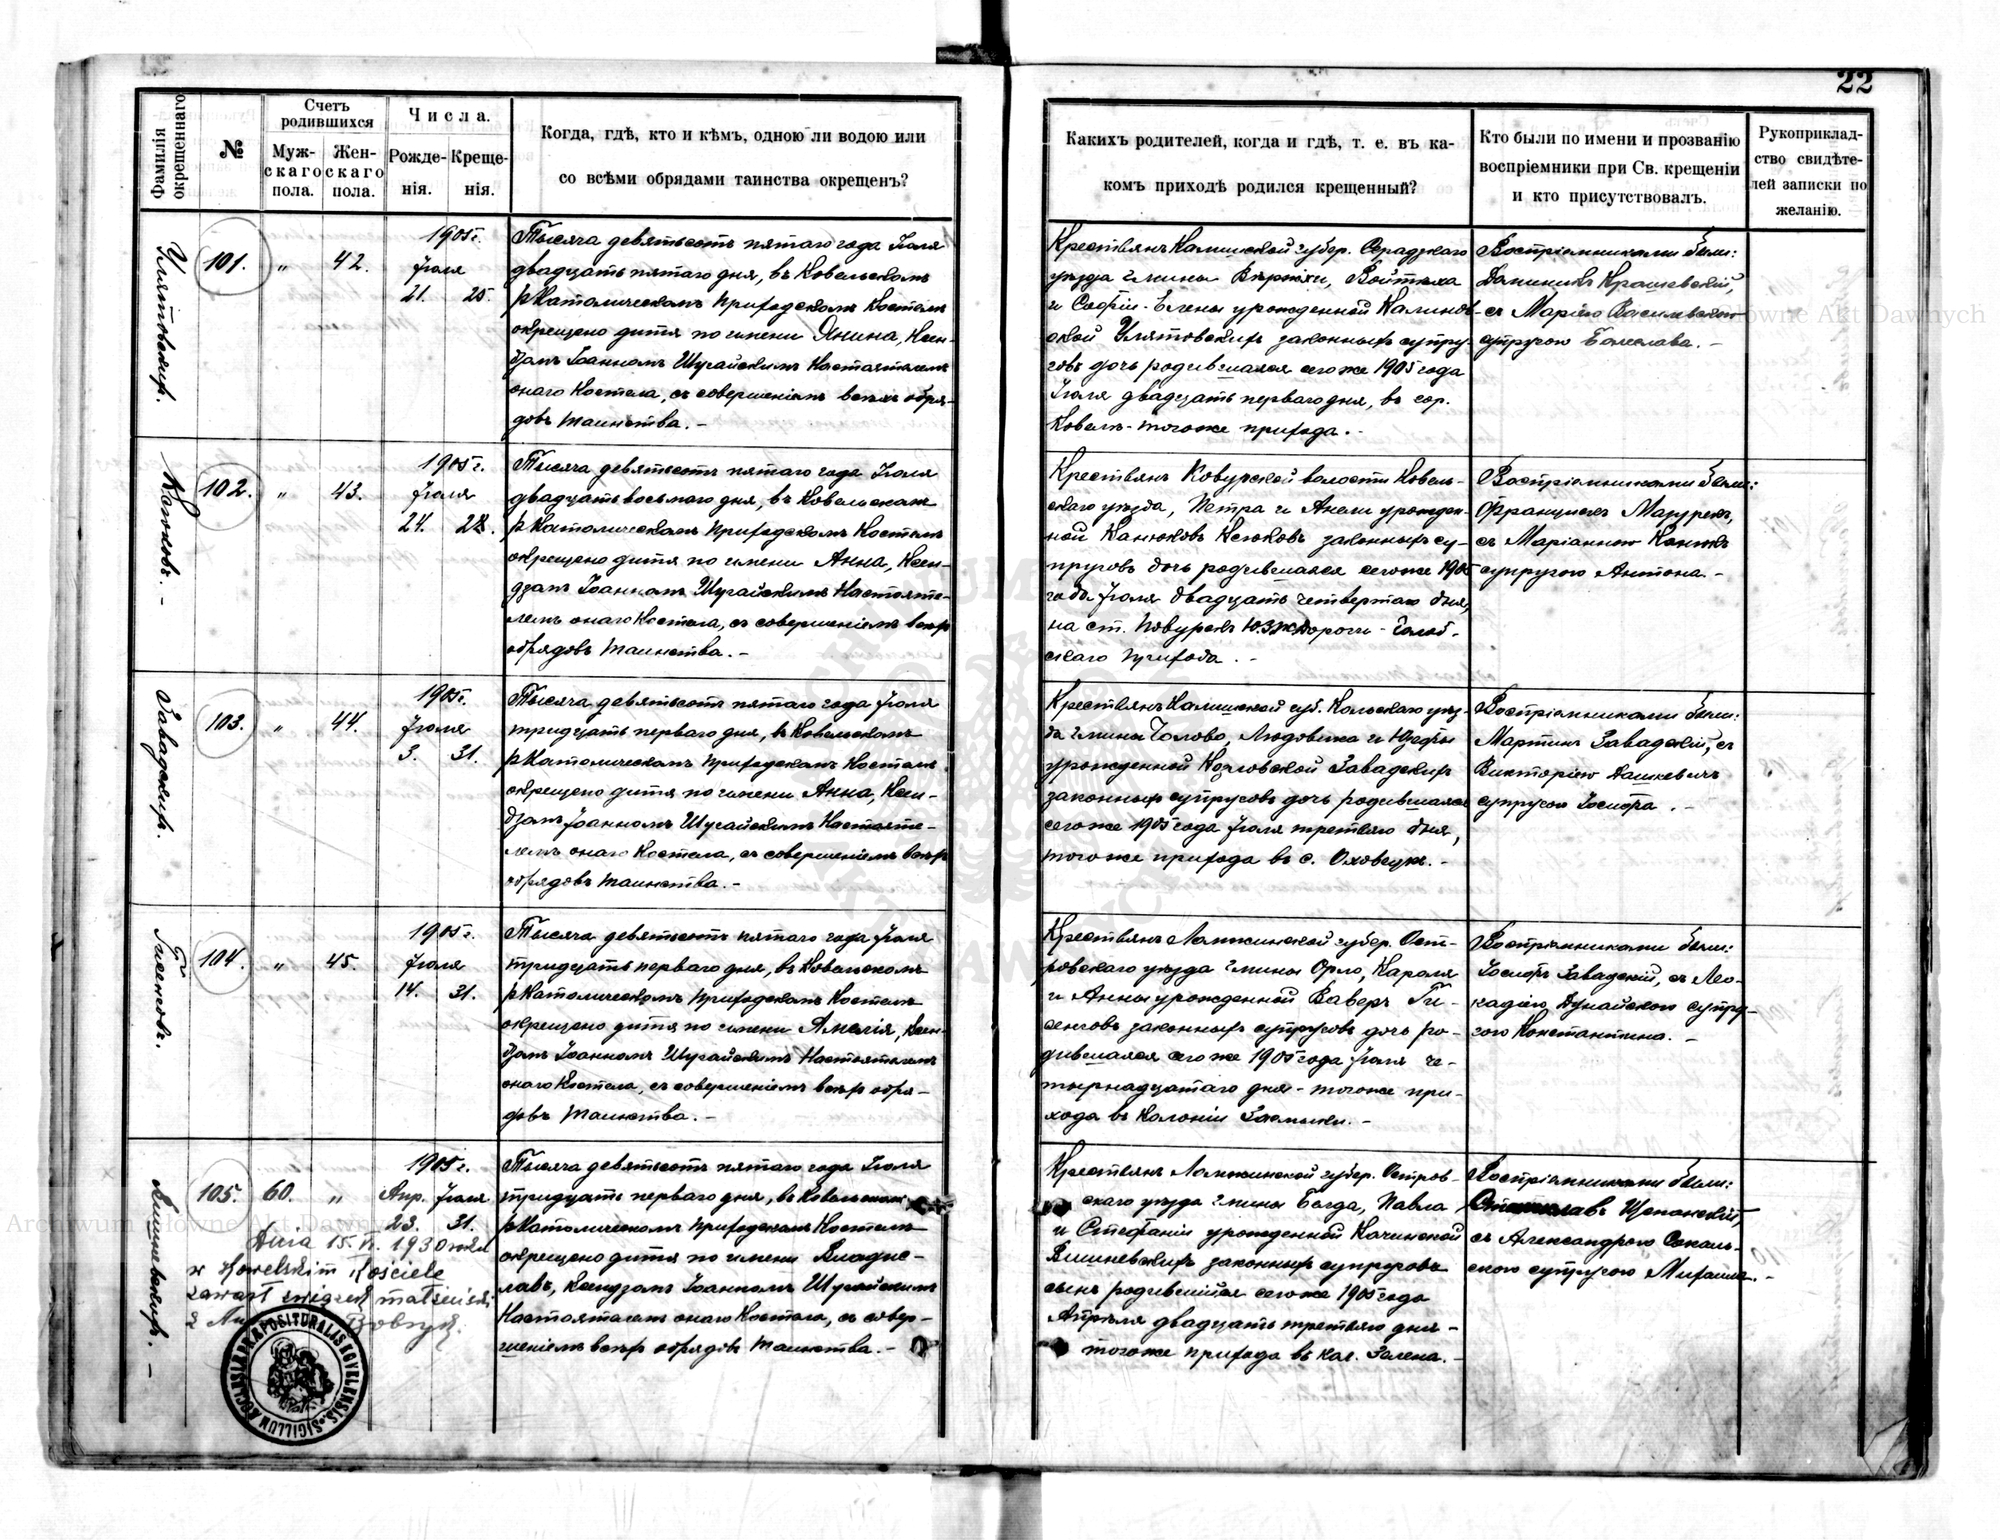 22
Фамилія окрещеннаго.
№
Счетъ родившихся
Мужскаго пола.
Женскаго пола.
Числа.
Рожденія.
Крещенія.
Когда, гдѣ, кто и кѣмъ, одною ли водою или
со всѣми обрядами таинства окрещенъ?
Какихъ родителей, когда и гдѣ, т. е. въ ка-
комъ приходѣ родился крещенный?
Кто были по имени и прозванію
воспріемники при Св. крещеніи
и кто присутствовалъ.
Рукоприклад-
ство свидѣте-
лей записки по
желанію.
101.
„
42.
1905 г.
Іюля
21. 25.
Тысяча девятьсотъ пятаго года Іюля
двадцать пятаго дня, въ Ковельскомъ
р Католическомъ Приходскомъ Костелѣ
окрещено дитя по имени Янина, Ксен-
дзомъ Іоанномъ Шугайскимъ Настоятелемъ
онаго Костела, съ совершеніемъ всѣхъ обря-
довъ таинства. –
Крестьянъ Калишской губер. Серадзкаго
уѣзда гмины Войтѣха
и Софіи-Елены урожденной Калинов-
ской законныхъ супру-
говъ дочь родившаяся сего же 1905 года
Іюля двадцать перваго дня, въ гор.
Ковелѣ - того же прихода. –
Воспріемниками были:
Доминикъ Крашевскій,
съ Маріею Василевскою
супругою Болеслава. –
Канюковъ. –
102.
„
43.
1905 г.
Іюля
24. 28.
Тысяча девятьсотъ пятаго года Іюля
двадцать восьмаго дня, въ Ковельскомъ
р Католическомъ Приходскомъ Костелѣ
окрещено дитя по имени Анна, Ксен-
дзомъ Іоанномъ Шугайскимъ Настояте-
лемъ онаго Костела, съ совершеніемъ всѣхъ
обрядовъ таинства. –
Крестьянъ волости Ковель-
скаго уѣзда, Петра и Анели урожден-
ной Канюковъ законныхъ су-
пруговъ дочь родившаяся сего же 1905
года Іюля двадцать четвертаго дня,
на ст. Повурскъ Ю.З.Ж.Дороги - Голоб-
скаго прихода. –
Воспріемниками были:
Францискъ Мазурекъ,
съ Маріанною
супругою Антона –
Завадскихъ.
103.
„
44.
1905 г.
Іюля
3. 31.
Тысяча девятьсотъ пятаго года Іюля
тридцать перваго дня, въ Ковельскомъ
р Католическомъ Приходскомъ Костелѣ
окрещено дитя по имени Анна, Ксен-
дзомъ Іоанномъ Шугайскимъ Настояте-
лемъ онаго Костела, съ совершеніемъ всѣхъ
обрядовъ таинства. –
Крестьянъ Калишской губ. Кольскаго уѣз-
да гмины Людовика и Юзефы
урожденной Козловской Завадскихъ
законныхъ супруговъ дочь родившаяся
сего же 1905 года Іюля третьяго дня,
того же прихода въ с. –
Воспріемниками были:
Мартинъ Завадскій, съ
Викторіею Дашкевичъ
супругою Іосифа. –
Гизенговъ.
104.
„
45.
1905 г.
Іюля
14. 31.
Тысяча девятьсотъ пятаго года Іюля
тридцать перваго дня, въ Ковельскомъ
р Католическомъ Приходскомъ Костелѣ
окрещено дитя по имени Амелія, Ксен-
дзомъ Іоанномъ Шугайскимъ Настоятелемъ
онаго Костела, съ совершеніемъ всѣхъ обря-
довъ таинства. –
Крестьянъ Ломжинской губер. Ост-
ровскаго уѣзда гмины Орло, Кароля
и Анны урожденной Ваверъ Ги-
зенговъ законныхъ супруговъ дочь ро-
дившаяся сего же 1905 года Іюля че-
тырнадцатаго дня - того же при-
хода въ Колоніи Засмыки. –
Воспріемниками были:
Іосифъ Завадскій, съ Лео-
кадіею Дунайскою супру-
гою Константина. –
Вишневскихъ. –
105.
60.
„
1905 г.
Апр. Іюля
23. 31.
Dnia 15.VI.1930 roku
w Kowelskim Kościele
zawarł związek małżeński
z
SIGILLUM ECCLESIAE PRAEPOSITURALIS KOVELENSIS
Тысяча девятьсотъ пятаго года Іюля
тридцать перваго дня, въ Ковельскомъ
р Католическомъ Приходскомъ Костелѣ
окрещено дитя по имени Владис-
лавъ, Ксендзомъ Іоанномъ Шугайскимъ
Настоятелемъ онаго Костела, съ совер-
шеніемъ всѣхъ обрядовъ таинства. –
Крестьянъ Ломжинской губер. Остров-
скаго уѣзда гмины Павла
и Стефаніи урожденной Качинской
Вишневскихъ законныхъ супруговъ
сынъ родившійся сего же 1905 года
Апрѣля двадцать третьяго дня -
того же прихода въ кол. Зелена. –
Воспріемниками были:
Станиславъ Щепанскій,
съ Александрою Соколь-
скою супругою Михаила. –
Archiwum Główne Akt Dawnych
Archiwum Główne Akt Dawnych
ARCHIWUM GŁÓWNE AKT DAWNYCH